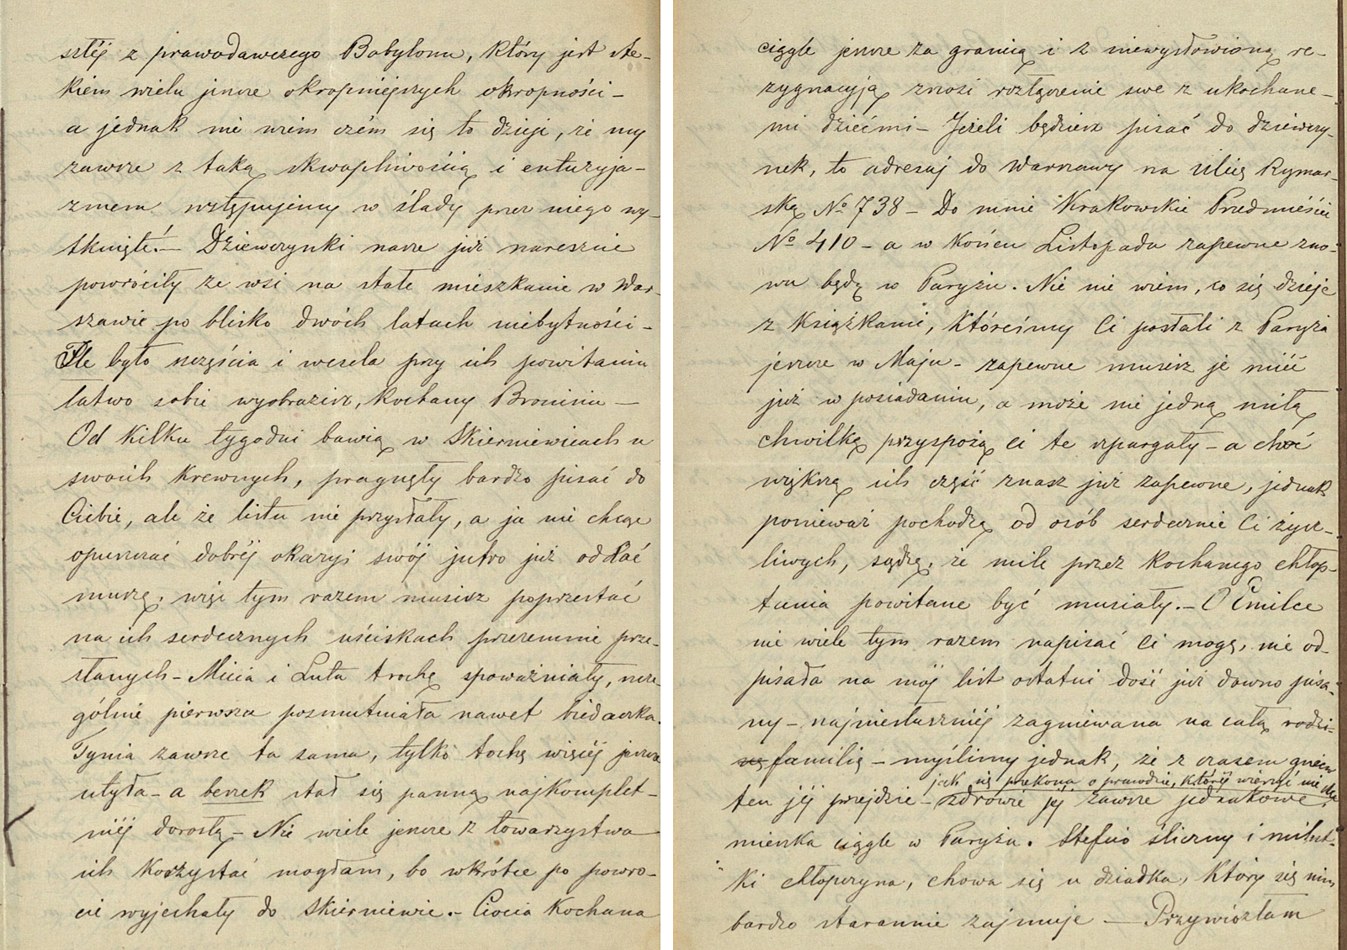 szłéj z prawodawczego Babylonu, który jest ste-
kiem wielu jeszcze okropniejszych okropności –
a jednak nie wiem czém się to dzieje, że my
zawsze z taką skwapliwością i entuzyja-
zmem wstępujemy w ślady przez niego wy-
tknięte. – Dziewczynki nasze już nareszcie
powróciły ze wsi na stałe mieszkanie w War-
szawie po blisko dwóch latach niebytności –
Ile było szczęścia i wesela przy ich powitaniu
łatwo sobie wyobrazisz, kochany Broniniu –
Od kilku tygodni bawią w Skierniewicach u
swoich krewnych, pragnęły bardzo pisać do
Ciebie, ale że listu nie przysłały, a ja nie chcąc
opuszczać dobréj okazyi swój jutro już oddać
muszę, więc tym razem musisz poprzestać
na ich serdecznych uściskach przezemnie prze-
słanych – Micia i Luta trochę spoważniały, szcze-
gólnie pierwsza posmutniała nawet biedaczka.
Tynia zawsze ta sama, tylko trochę więcéj jeszcze
utyła – a berek stał się panną najkomplet-
niéj dorosłą – Nie wiele jeszcze z towarzystwa
ich korzystać mogłam, bo wkrótce po powro-
cie wyjechały do Skierniewic. – Ciocia Kochana
ciągle jeszcze za granicą i z niewysłowioną re-
zygnacyją znosi rozłączenie swe z ukochane-
mi dziećmi – Jeżeli będziesz pisać do dziewczy-
nek, to adresuj do Warszawy na Ulicę Rymar-
ską № 738 – Do mnie Krakowskie Przedmieście
№ 410 – a w Końcu Listopada zapewne zno-
wu będę w Paryżu. Nic nie wiem, co się dzieje
z Książkami, któreśmy Ci posłali z Paryża
jeszcze w Maju – zapewne musisz je mieć
już w posiadaniu, a może nie jedną miłą
chwilkę przysporzą Ci te szpargały – a choć
większą ich część znasz już zapewne, jednak
ponieważ pochodzą od osób serdecznie Ci życz-
liwych, sądzę, że mile przez kochanego chłop-
tunia powitane być musiały. – O Emilce
nie wiele tym razem napisać Ci mogę, nie od-
pisała na mój list ostatni dość już dawno pisa-
ny – najniesłuszniéj zagniewana na całą rodzi-
familię – myślimy jednak, że z czasem gniew
jak się przekona o prawdzie, któréj wierzyć nie chce
ten jéj przejdzie – zdrowie jéj zawsze jednakowe,
mieszka ciągle w Paryżu. Stefcio śliczny i milut-
ki chłopczyna, chowa się u dziadka, który się nim
bardzo starannie zajmuje – Przywiozłam